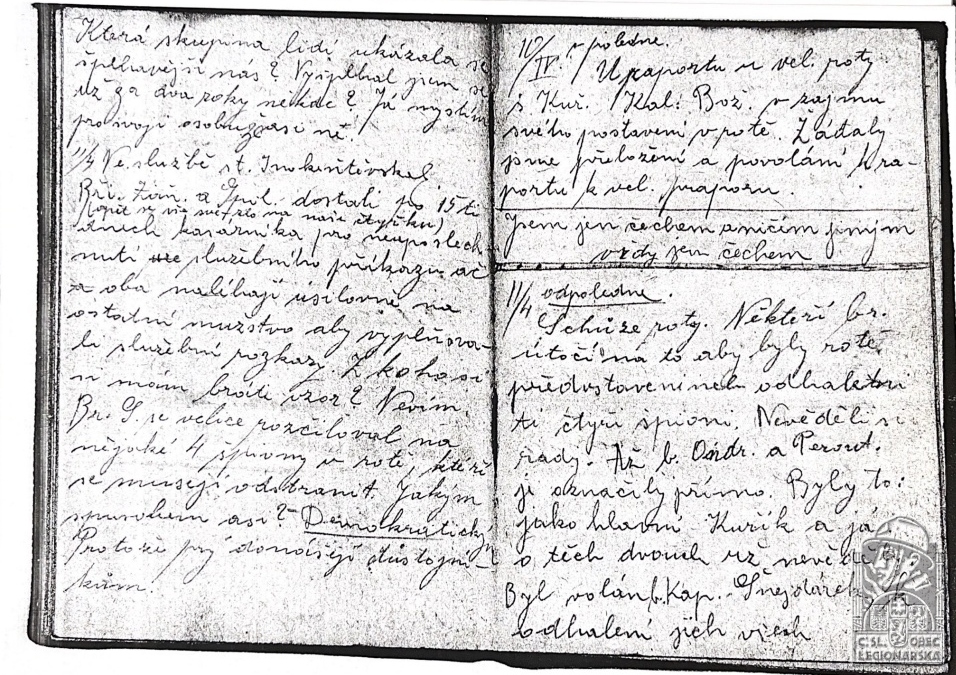 Která skupina lidí ukázala se
šplhavější nás? Vyšplhal jsem se
už za dva roky někde? Já myslím
pro svoji osobu asi ně.
11/4 Ve službě st. Inokentěvskaj.
Bři. a Spol. dostali po 15ti
(opět se vše na naši čtyřku)
dnech kasárníka pro neuposlech
nutí služebního příkazu ač
oba naléhají úsilovně na
ostatní mužstvo aby vyplňova-
li služební rozkazy. Z koho si
mám bráti vzor? Nevím.
Br. S se velice rozčiloval na
nějaké 4 špiony v rotě, kteří
se musejí odstranit. Jakým
spusobem asi? Demokratický
Protože prý donášejí důstojní-
kům.
10/IV v poledne.
U raportu u vel. roty
s Kuř. Kal. Bož. v zajmu
svého postavení v rotě. Žádaly
jsme přeložení a povolání k ra-
portu k vel. praporu.
Jsem jen čechem a ničím jiným
vždy jen čechem
11/4 odpoledně.
Schůze roty. Někteří br.
útočí na to aby byly rotě
představeni neb odhaleni
ti čtyři špioni. Nevěděli si
rady. Až b. Ondr. a Perout.
je označily přímo. Byly to:
jako hlavní Kuřík a já
o těch dvouch už
Byl volán b. Kap. Šnejdárek k
odhalení jich všech
ČSL. OBEC
LEGIONÁŘSKÁ